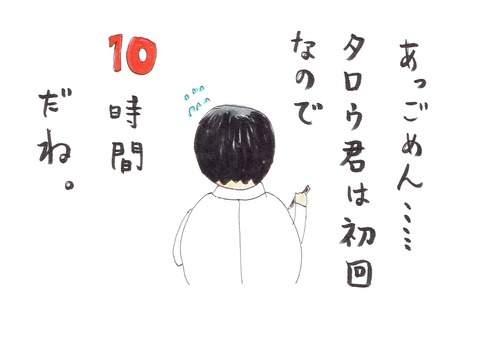 あっごめん……
タロウ君は初回
なので
10
時間
だね。